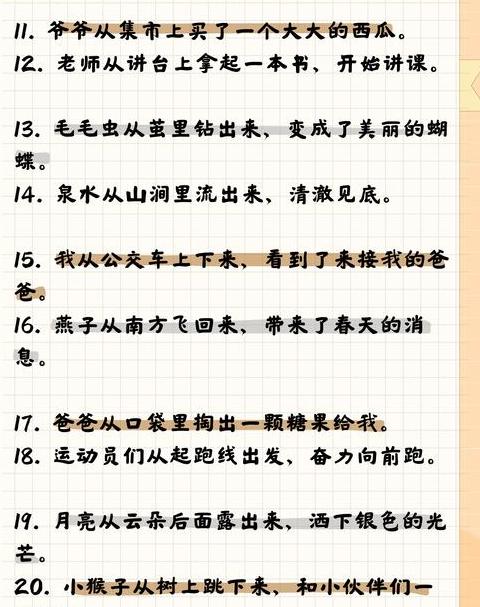 11. 爷爷从集市上买了一个大大的西瓜。
12. 老师从讲台上拿起一本书、开始讲课。
13. 毛毛虫从茧里钻出来、变成了美丽的蝴
蝶。
14. 泉水从山涧里流出来、清澈见底。
15. 我从公交车上下来、看到了来接我的爸
爸。
16. 燕子从南方飞回来、带来了春天的消
息。
17. 爸爸从口袋里掏出一颗糖果给我。
18. 运动员们从起跑线出发、奋力向前跑。
19. 月亮从云朵后面露出来、洒下银色的光
芒。
20. 小猴子从树上跳下来、和小伙伴们一